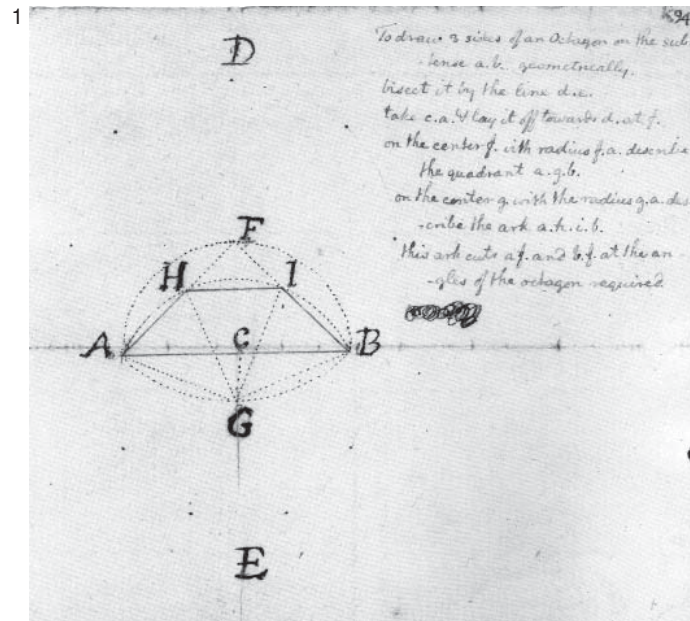 1
K94
To draw 3 sides of an Octagon on the sub
-tense a.b. geometrically.
bisect it by the line d.e.
take c.a. & lay it off towards d. at f.
on the center f. with radius f.a. describe
the quadrant a.g.b.
on the center g. with the radius g.a. des
-cribe the ark a.h.i.b.
this ark cuts a f. and b.f. at the an-
-gles of the octagon required
D
F
H I
A C B
G
E